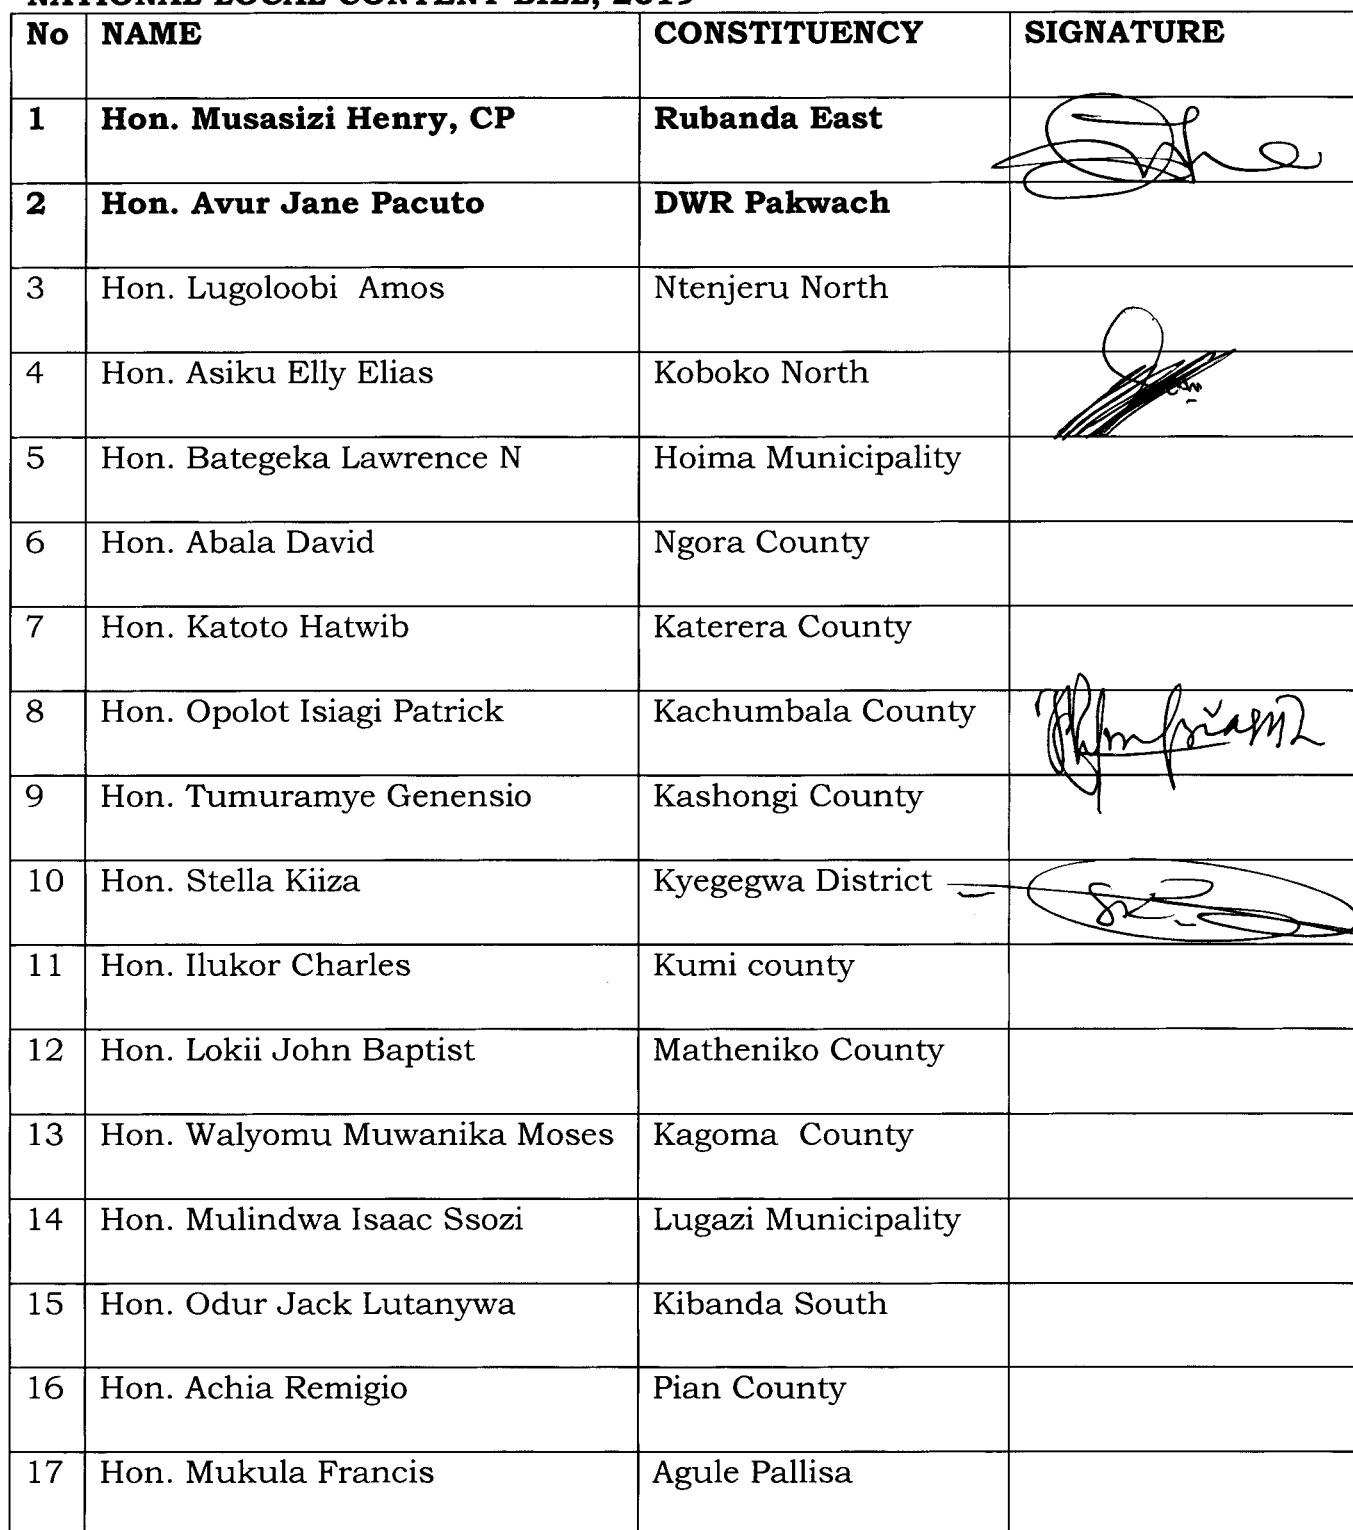 NATIONAL LOCAL CONTENT BILL, 2019
No NAME CONSTITUENCY SIGNATURE
1 Hon. Musasizi Henry, CP Rubanda East
2 Hon. Avur Jane Pacuto DWR Pakwach
3 Hon. Lugoloobi Amos Ntenjeru North
4 Hon. Asiku Elly Elias Koboko North
5 Hon. Bategeka Lawrence N Hoima Municipality
6 Hon. Abala David Ngora County
7 Hon. Katoto Hatwib Katerera County
8 Hon. Opolot Isiagi Patrick Kachumbala County
9 Hon. Tumuramye Genensio Kashongi County
10 Hon. Stella Kiiza Kyegegwa District
11 Hon. Ilukor Charles Kumi county
12 Hon. Lokii John Baptist Matheniko County
13 Hon. Walyomu Muwanika Moses Kagoma County
14 Hon. Mulindwa Isaac Ssozi Lugazi Municipality
15 Hon. Odur Jack Lutanywa Kibanda South
16 Hon. Achia Remigio Pian County
17 Hon. Mukula Francis Agule Pallisa